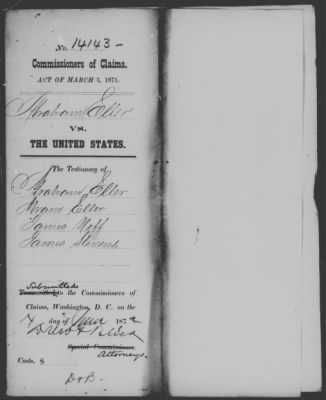 No. 14143-
Commissioners of Claims.
ACT OF MARCH 3, 1871.
Abraham Eller
VS.
THE UNITED STATES.
The Testimony of
Abraham Eller
Abram Eller
James Neff
James Stevens
Submitted
Transmitted to the Commissioners of
Claims, Washington, D. C., on the
4 day of June 1872
Special Commissioner.
Attorneys.
Code. $